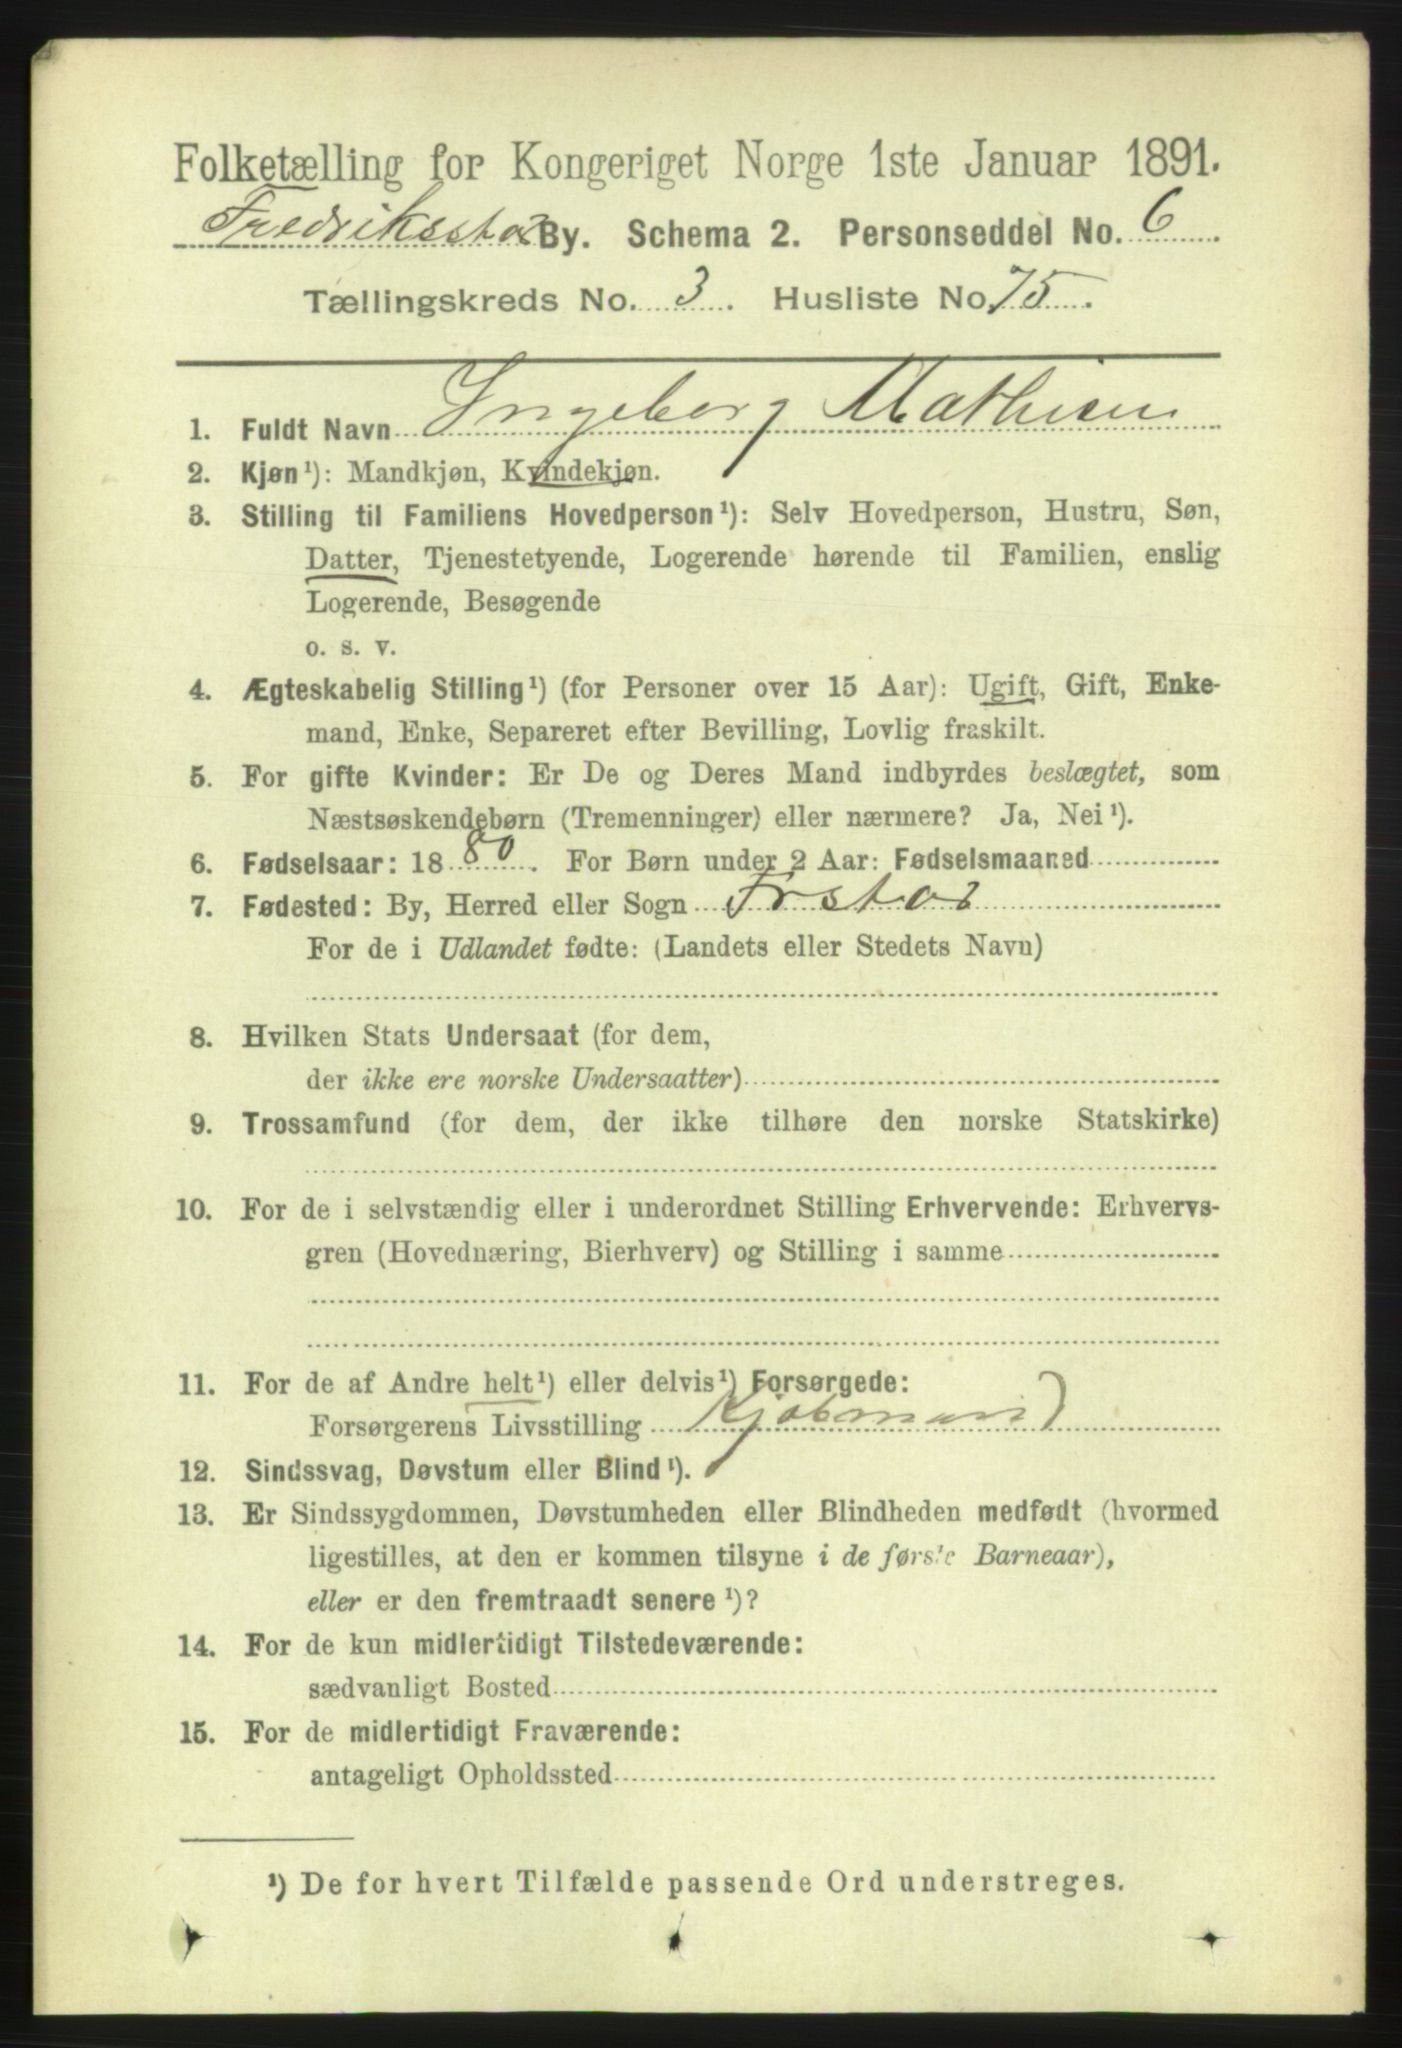 Folketælling for Kongeriget Norge 1ste Januar 1891.
Fredriksstad By. Schema 2. Personseddel No. 6
Tællingskreds No. 3. Husliste No. 75.
1. Fuldt Navn Ingeborg Mathisen
2. Kjøn¹): Mandkjøn, Kvindekjøn.
3. Stilling til Familiens Hovedperson¹): Selv Hovedperson, Hustru, Søn,
Datter, Tjenestetyende, Logerende hørende til Familien, enslig
Logerende, Besøgende
o. s. v.
4. Ægteskabelig Stilling¹) (for Personer over 15 Aar): Ugift, Gift, Enke-
mand, Enke, Separeret efter Bevilling, Lovlig fraskilt.
5. For gifte Kvinder: Er De og Deres Mand indbyrdes beslægtet, som
Næstsøskendebørn (Tremenninger) eller nærmere? Ja, Nei¹).
6. Fødselsaar: 1880. For Børn under 2 Aar: Fødselsmaaned
7. Fødested: By, Herred eller Sogn Frstad
For de i Udlandet fødte: (Landets eller Stedets Navn)
8. Hvilken Stats Undersaat (for dem,
der ikke ere norske Undersaatter)
9. Trossamfund (for dem, der ikke tilhøre den norske Statskirke)
10. For de i selvstændig eller i underordnet Stilling Erhvervende: Erhvervs-
gren (Hovednæring, Bierhverv) og Stilling i samme
11. For de af Andre helt¹) eller delvis¹) Forsørgede:
Forsørgerens Livsstilling Kjøbmand
12. Sindssvag, Døvstum eller Blind¹).
13. Er Sindssygdommen, Døvstumheden eller Blindheden medfødt (hvormed
ligestilles, at den er kommen tilsyne i de første Barneaar),
eller er den fremtraadt senere¹)?
14. For de kun midlertidigt Tilstedeværende:
sædvanligt Bosted
15. For de midlertidigt Fraværende:
antageligt Opholdssted
¹) De for hvert Tilfælde passende Ord understreges.